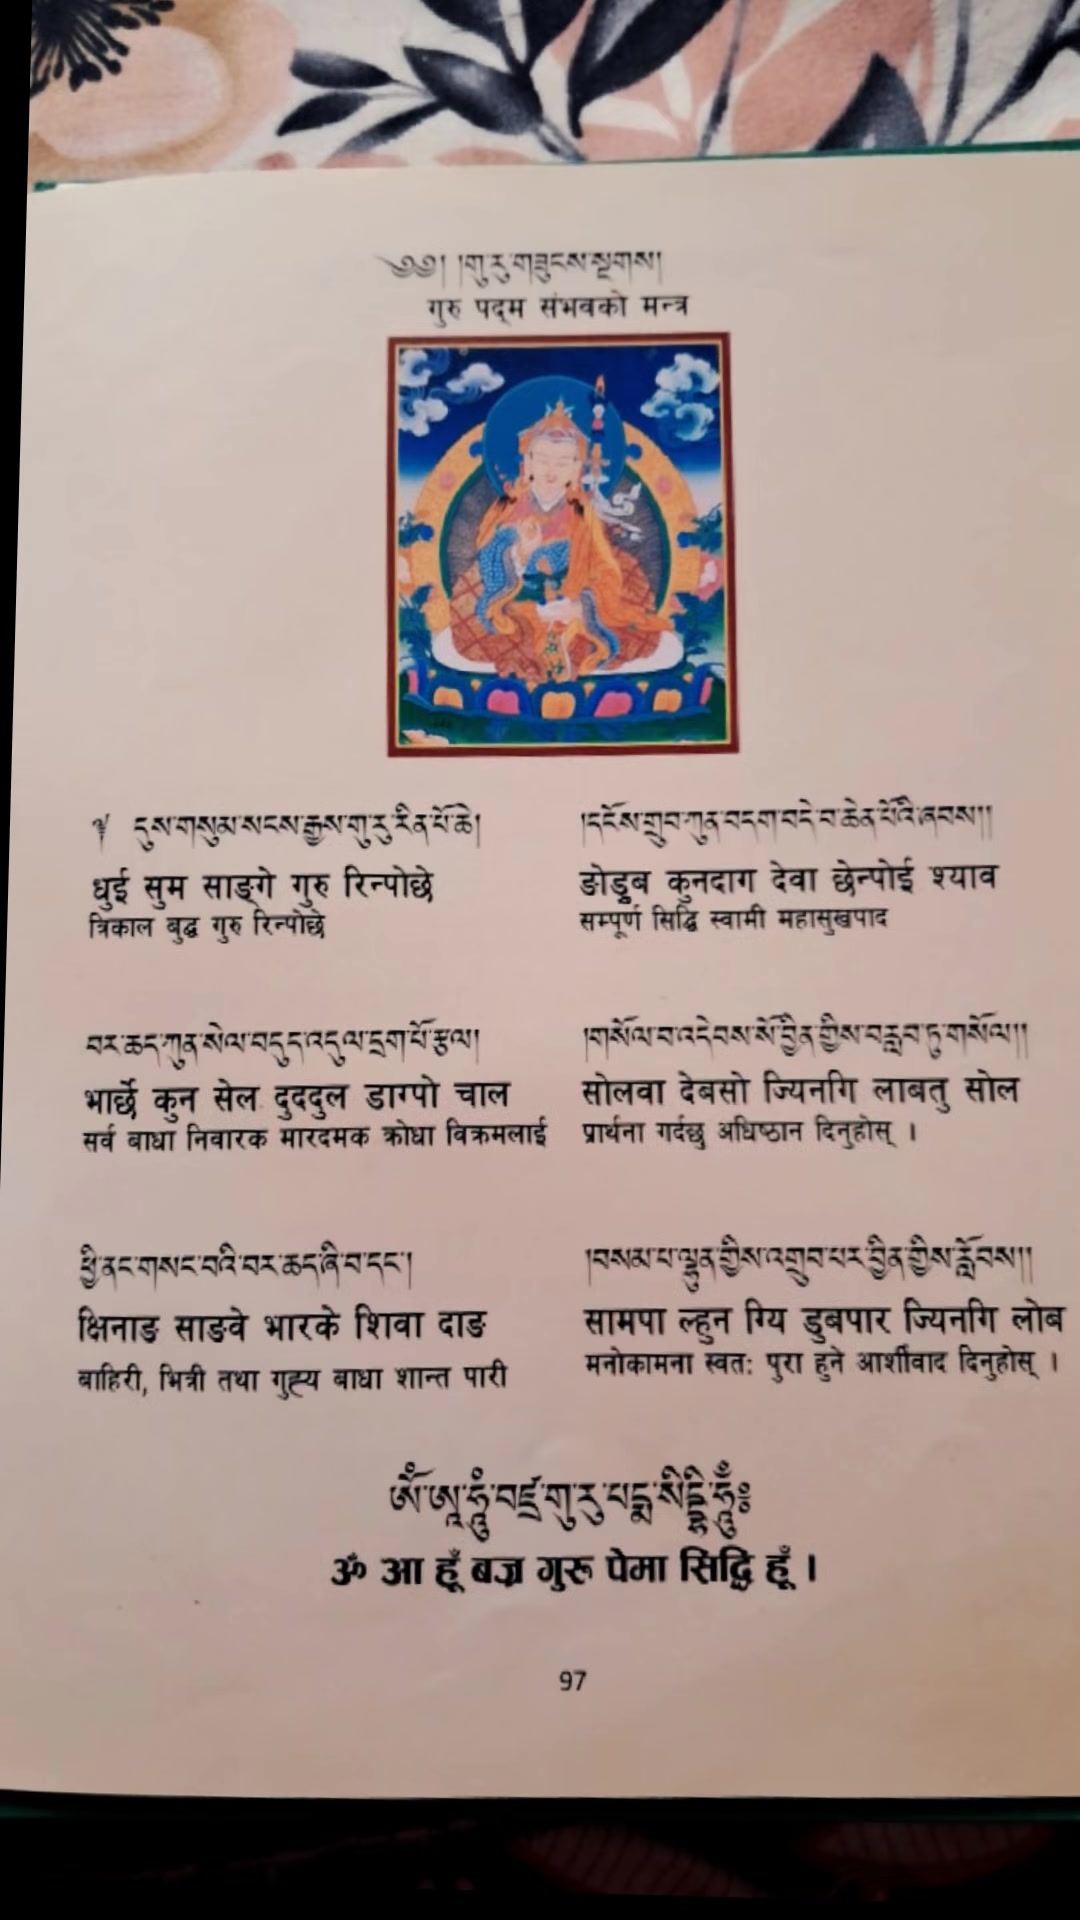 ༄༅། །གུ་རུ་གཟུངས་སྔགས།
गुरु पद्म संभवको मन्त्र
༈ དུས་གསུམ་སངས་རྒྱས་གུ་རུ་རིན་པོ་ཆེ།
धुई सुम साङ्गे गुरु रिन्पोछे
त्रिकाल बुद्ध गुरु रिन्पोछे
།དངོས་གྲུབ་ཀུན་བདག་བདེ་བ་ཆེན་པོའི་ཞབས།།
ङोडुब कुनदाग देवा छेन्पोई श्याव
सम्पूर्ण सिद्धि स्वामी महासुखपाद
བར་ཆད་ཀུན་སེལ་བདུད་འདུལ་དྲག་པོ་རྩལ།
भार्छे कुन सेल दुददुल डाग्पो चाल
सर्व बाधा निवारक मारदमक क्रोधा विक्रमलाई
།གསོལ་བ་འདེབས་སོ་བྱིན་གྱིས་བརླབ་ཏུ་གསོལ།།
सोलवा देबसो ज्यिनगि लाबतु सोल
प्रार्थना गर्दछु अधिष्ठान दिनुहोस् ।
ཕྱི་ནང་གསང་བའི་བར་ཆད་ཞི་བ་དང་།
क्षिनाङ साङवे भारके शिवा दाङ
बाहिरी, भित्री तथा गुह्य बाधा शान्त पारी
།བསམ་པ་ལྷུན་གྱིས་འགྲུབ་པར་བྱིན་གྱིས་རློབས།།
सामपा ल्हुन ग्यि डुबपार ज्यिनगि लोब
मनोकामना स्वतः पुरा हुने आर्शीवाद दिनुहोस् ।
ༀ་ཨཱཿ་ཧཱུྃ་བཛྲ་གུ་རུ་པདྨ་སིདྡྷི་ཧཱུྃ༔
ॐ आ हूँ बज्र गुरू पेमा सिद्धि हूँ ।
97